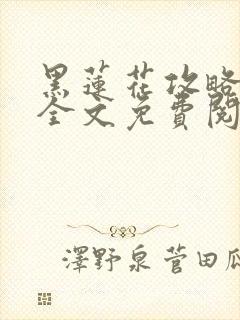 黑蓮花攻略
全文免費閱
澤野泉菅田瓜